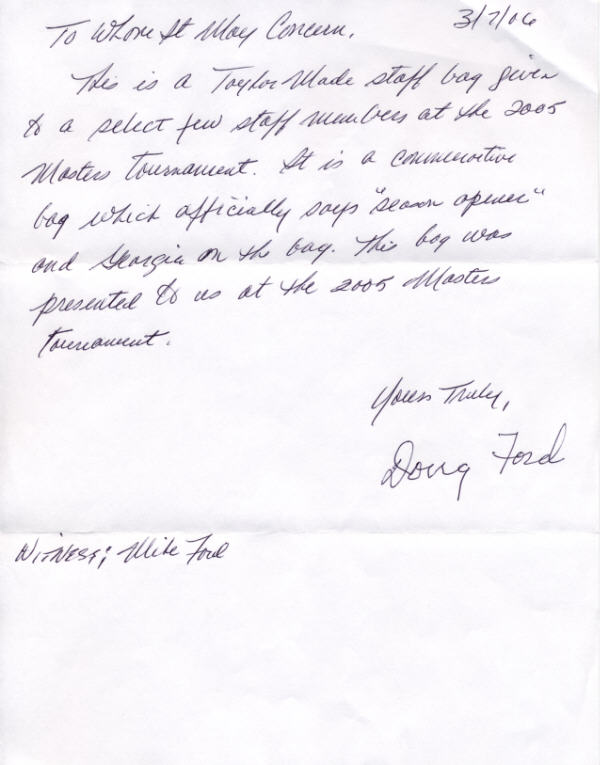 3/7/06
To Whom It May Concern,
This is a Taylor Made staff bag given
to a select few staff members at the 2005
Masters Tournament. It is a commemorative
bag which officially says "season opener"
and Georgia on the bag. This bag was
presented to us at the 2005 Masters
Tournament.
Yours Truly,
Doug Ford
Witness; Mike Ford